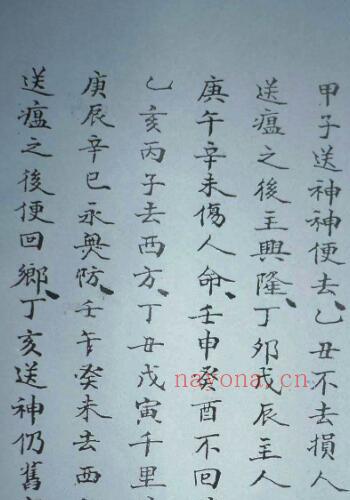 甲子送神神便去、乙丑不去損人
送瘟之後主興隆、丁卯戊辰主人
庚午辛未傷人命、壬申癸酉不回
乙亥丙子去西方、丁丑戊寅千里
庚辰辛巳永興防、壬午癸未去西
送瘟之後便回鄉、丁亥送神仍舊
nayona.cn